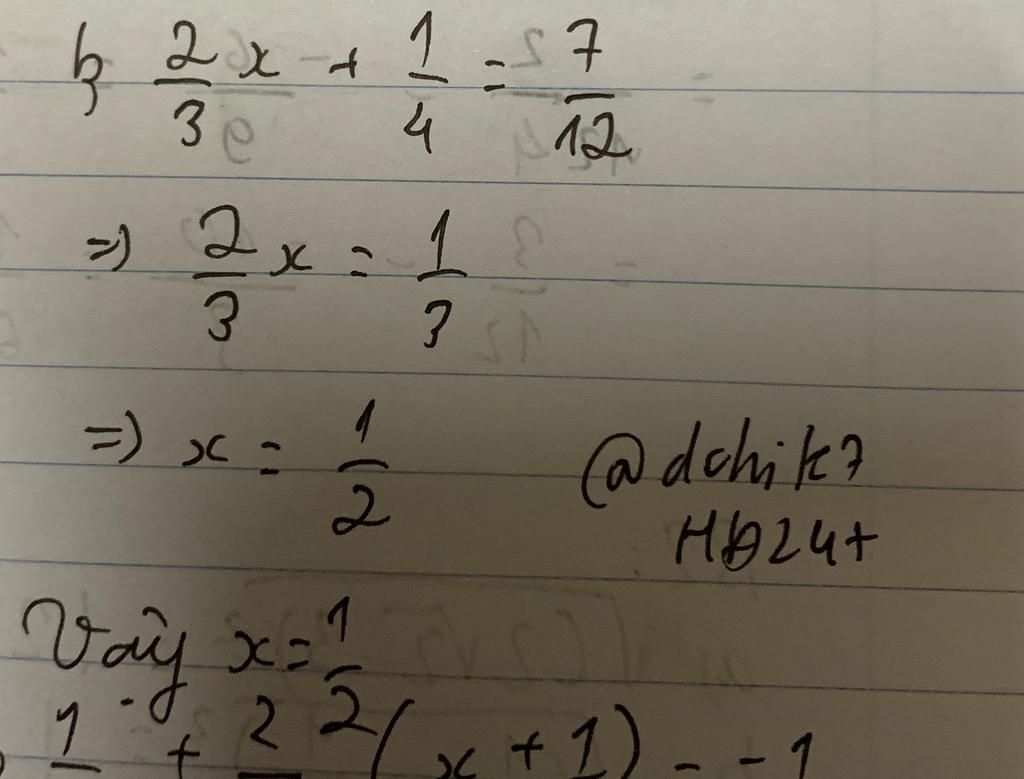 b, 2/3 x + 1/4 = 7/12
=) 2/3 x = 1/3
=) x = 1/2
@dchik7
Hb24+
Vậy x = 1/2
1 + 2 (x + 1) = -1